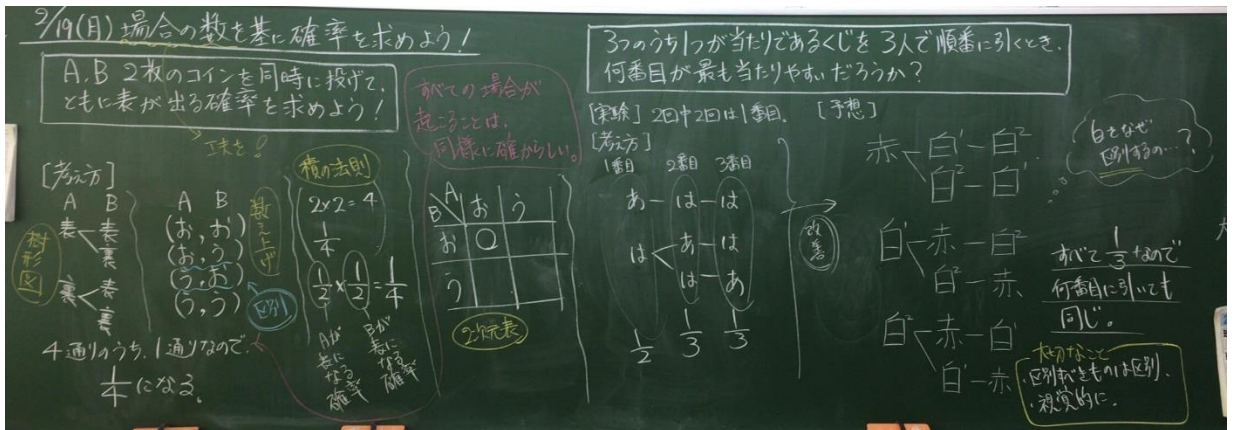 2/19(月) 場合の数を基に確率を求めよう！
A,B 2枚のコインを同時に投げて、
ともに表が出る確率を求めよう！
工夫を！
[考え方]
A B
表 表
裏
裏 表
裏
樹形図
A B
(お,お)
(お,う)
(う,お)
(う,う)
数え上げ
区別
4通りのうち、1通りなので、
1/4になる。
積の法則
2×2=4
1/4
1/2×1/2=1/4
Aが表になる確率
Bが表になる確率
すべての場合が
起こることは、
同様に確からしい。
A
B お う
お ○
う
2次元表
3つのうち1つが当たりであるくじを3人で順番に引くとき、
何番目が最も当たりやすいだろうか？
[実験] 2回中2回は1番目。 [予想]
[考え方]
1番目 2番目 3番目
あ－は－は
は あ－は
は－あ
1/2 1/3 1/3
改善
赤 白¹－白²
白²－白¹
白¹ 赤－白²
白²－赤
白² 赤－白¹
白¹－赤
白をなぜ
区別するの…？
すべて1/3なので
何番目に引いても
同じ。
大切なこと
・区別すべきものは区別。
・視覚的に。